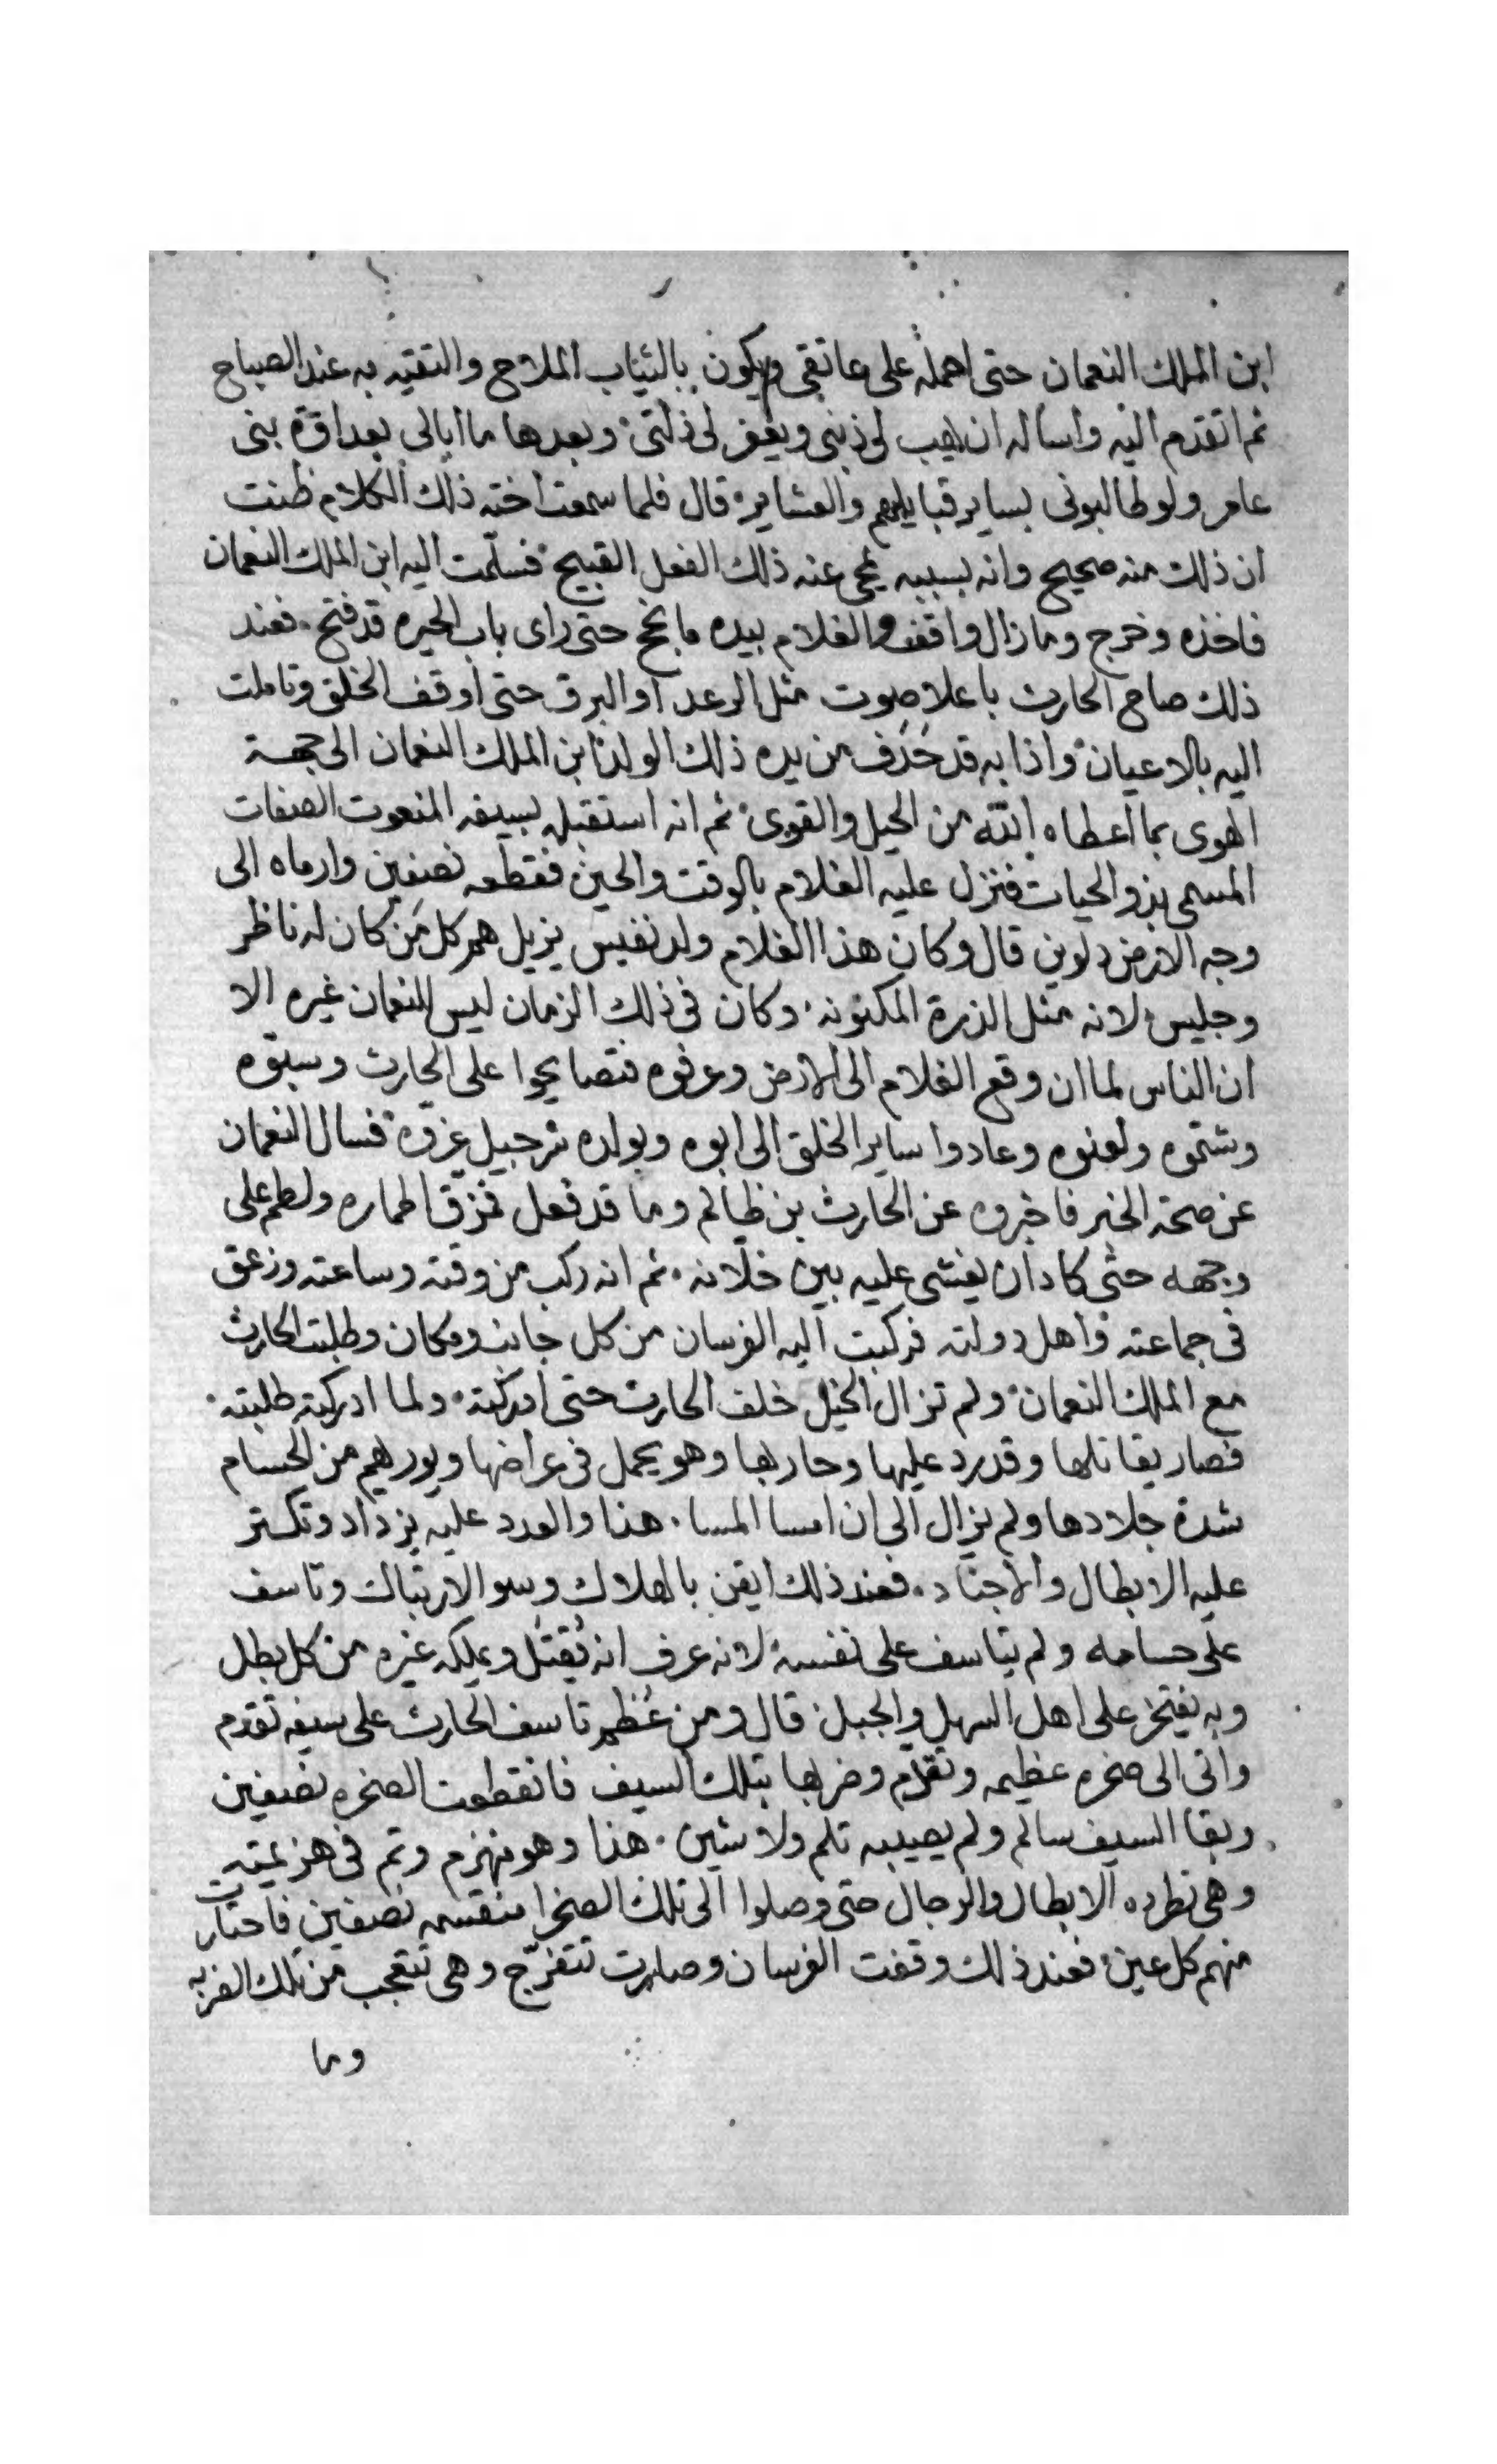 ابن الملك النعمان حتى احمله على عاتقى ويكون بالثياب الملاح والتقيه به عند الصباح
ثم اتقدم اليه واساله ان يهب لى ذنبى ويغفر لى ذلتى وبعدها ما ابالى بعداوة بنى
عامر ولو طالبونى بساير قبايلهم والعشاير قال فلما سمعت اخته ذلك الكلام ظنت
ان ذلك منه صحيح وانه بسببه يمحى عنه ذلك الفعل القبيح فسلمت اليه ابن الملك النعمان
فاخذه وخرج وما زال واقف والغلام بيده حتى راى باب الحيره قد فتح فعند
ذلك صاح الحارث باعلا صوت مثل الرعد او البرق حتى اوقف الخلق وتاملت
اليه بالاعيان واذا به قد حذف من يده ذلك الولد ابن الملك النعمان الى جهة
الهوى بما اعطاه الله من الحيل والقوى ثم انه استقبله بسيفه المنعوت الصفات
المسمى بذو الحيات فنزل عليه الغلام بالوقت والحين فقطعه نصفين وارماه الى
وجه الارض دلوين قال وكان هذا الغلام ولد نفيس يزيل هم كل من كان له ناظر
وجليس لانه مثل الدرة المكنونه وكان فى ذلك الزمان ليس للنعمان غيره الا
ان الناس لما ان وقع الغلام الى الارض وعرفوه فتصايحوا على الحارث وسبوه
وشتموه ولعنوه وعادوا ساير الخلق الى ابوه وبولده شرحبيل عزوه فسال النعمان
عن صحة الخبر فاخبروه عن الحارث بن ظالم وما قد فعل فمزق اطماره ولطم على
وجهه حتى كاد ان يغشى عليه بين خلانه ثم انه ركب من وقته وساعته وزعق
فى جماعته واهل دولته فركبت اليه الفرسان من كل جانب ومكان وطلبت الحارث
مع الملك النعمان ولم تزال الخيل خلف الحارث حتى ادركته ولما ادركته طلبته
فصار يقاتلها وقد رد عليها وحاربها وهو يحمل فى عراضها ويوريهم من الحسام
شدة جلادها ولم يزال الى ان امسا المسا هذا والعدد عليه يزداد وتكتر
عليه الابطال والاجناد فعند ذلك ايقن بالهلاك وسو الارتباك وتاسف
على حسامه ولم يتاسف على نفسه لانه عرف انه يقتل ويملكه غيره من كل بطل
وبه يفتخر على اهل السهل والجبل قال ومن عظم تاسف الحارث على سيفه تقدم
واتى الى صخره عظيمه وتقدم وضربها بتلك السيف فانقطعت الصخره نصفين
وبقا السيف سالم ولم يصيبه تلم ولا شين هذا وهو منهزم وتم فى هزيمته
وهى تطرده الابطال والرجال حتى وصلوا الى تلك الصخرا منقسمه نصفين فاحتارت
منهم كل عين فعند ذلك وقفت الفرسان وصارت تتفرج وهى تتعجب من تلك الضربه
وما